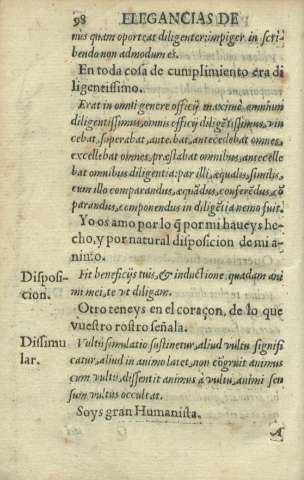 98 ELEGANCIAS DE
nus quam oporteat diligenter: impiger in scri-
bendo non admodum es.
En toda cosa de cumplimiento era di
ligentissimo.
Erat in omni genere officij maximè omnium
diligentissimus, omnis efficij diligẽtissimus, vin
cebat, superabat, ante.bat, antecedebat omnes,
excellebat omnes, præstabat omnibus, antecelle
bat omnibus diligentia: par illi, æqualis, similis,
cum illo comparandus, æquãdus, conferẽdus, cõ
parandus, componendus in diligẽtia nemo fuit.
Yo os amo por lo q̃ por mi haueys he-
cho, y por natural disposicion de mi a-
nimo.
Disposi-
cion.
Fit beneficijs tuis, & inductione quadam ani
mi mei, te vt diligam.
Otro teneys en el coraçon, de lo que
vuestro rostro señala.
Dissimu
lar.
Vultu simulatio sustinetur, aliud vultu signifi
catur, aliud in animo latet, non cõgruit animus
cum vultu, dissentit animus à vultu, animi sen
sum vultus occultat.
Soys gran Humanista.
A